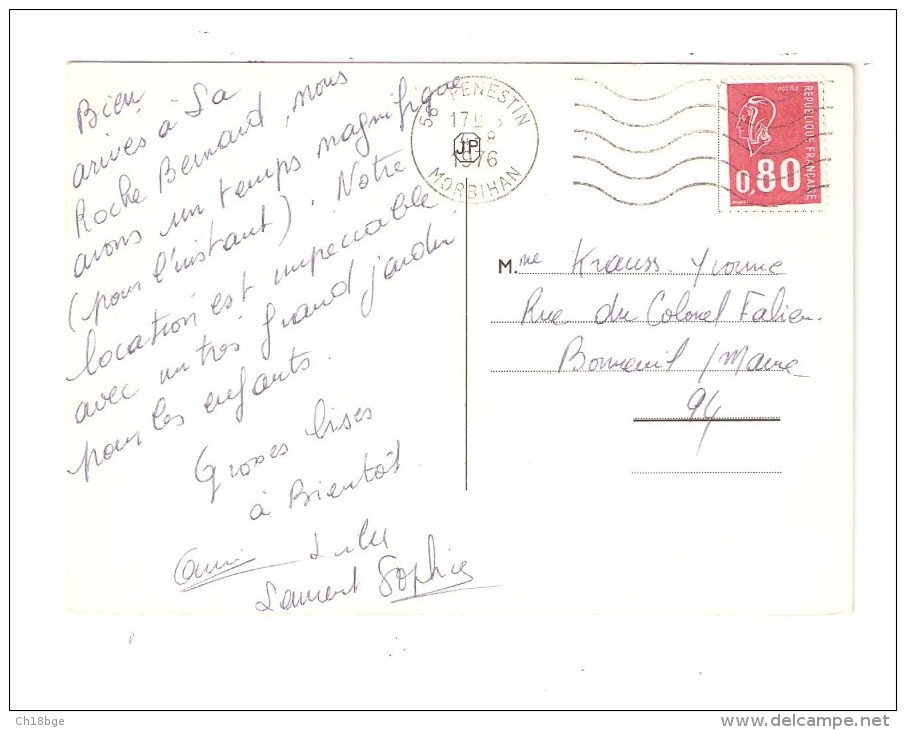 Bien
arrivés à La
Roche Bernard, nous
avons un temps magnifique
(pour l'instant). Notre
location est impeccable
avec un très grand jardin
pour les enfants.
Grosses bises
à Bientôt.
Laurent Sophie
56 PENESTIN
1976
MORBIHAN
JP
POSTES
REPUBLIQUE FRANÇAISE
0,80
M.me Krauss Yvonne
Rue du Colonel Fabien.
Bonneuil / Marne
94
Ch18bge
www.delcampe.net